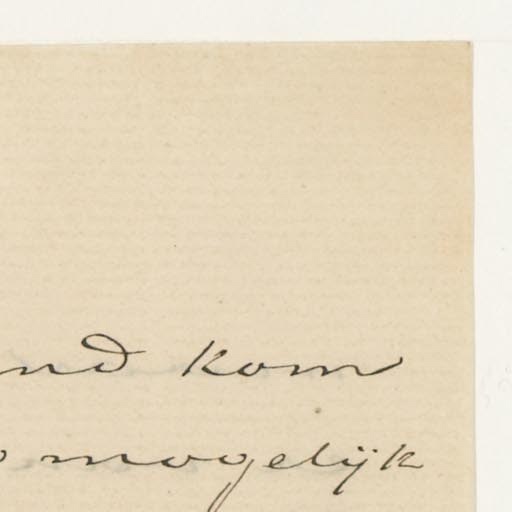 nd kom
mogelijk